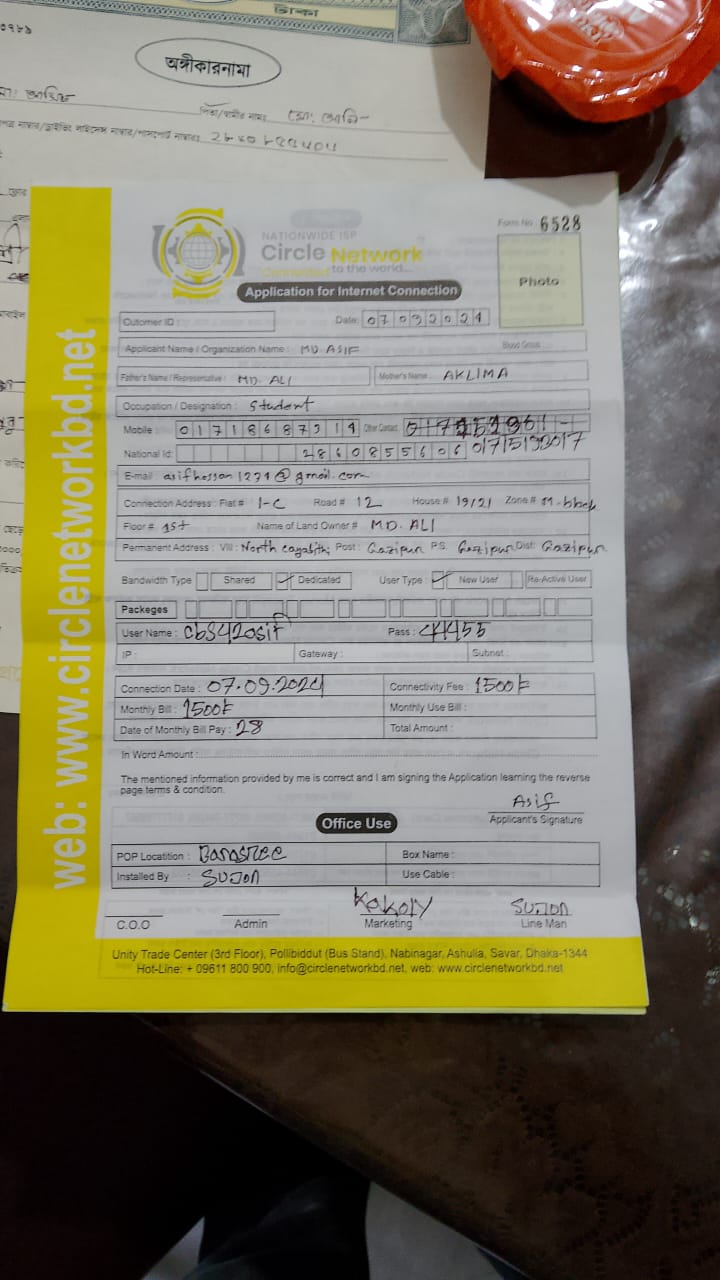 টাকা
৩৭৮৯
অঙ্গীকারনামা
পিতা/স্বামীর নাম মো: আলি-
Form No 6528
NATIONWIDE ISP
Circle Network
Connected to the world...
Photo
Application for Internet Connection
Cutomer ID :
Date: 07032024
Applicant Name / Organization Name : MD. ASIF Blood Group :
Father's Name / Representative : MD. ALI Mother's Name : AKLIMA
Occupation / Designation : Student
Mobile 01718687314 Other Contact
National Id: 2860855606
E-mail asifhossan1234@gmail.com
Connection Address : Flat # 1-C Road # 12 House # 19/21 Zone #
Floor # 1st Name of Land Owner # MD. ALI
Permanent Address : Vill : North Post : Gazipur P.S. Gazipur Dist: Gazipur
Bandwidth Type Shared Dedicated User Type : New User Re-Active User
Packeges
User Name : cbs420sif Pass : 44455
IP : Gateway : Subnet :
Connection Date : 07.09.2024 Connectivity Fee : 1500৳
Monthly Bill : 1500৳ Monthly Use Bill :
Date of Monthly Bill Pay : 28 Total Amount :
In Word Amount :
The mentioned information provided by me is correct and I am signing the Application learning the reverse
page terms & condition.
Asif
Applicant's Signature
Office Use
POP Locatition : Banasree Box Name :
Installed By : SUJON Use Cable :
KOKOLY SUJON
C.O.O Admin Marketing Line Man
Unity Trade Center (3rd Floor), Pollibiddut (Bus Stand), Nabinagar, Ashulia, Savar, Dhaka-1344
Hot-Line: + 09611 800 900, info@circlenetworkbd.net, web: www.circlenetworkbd.net
web: www.circlenetworkbd.net